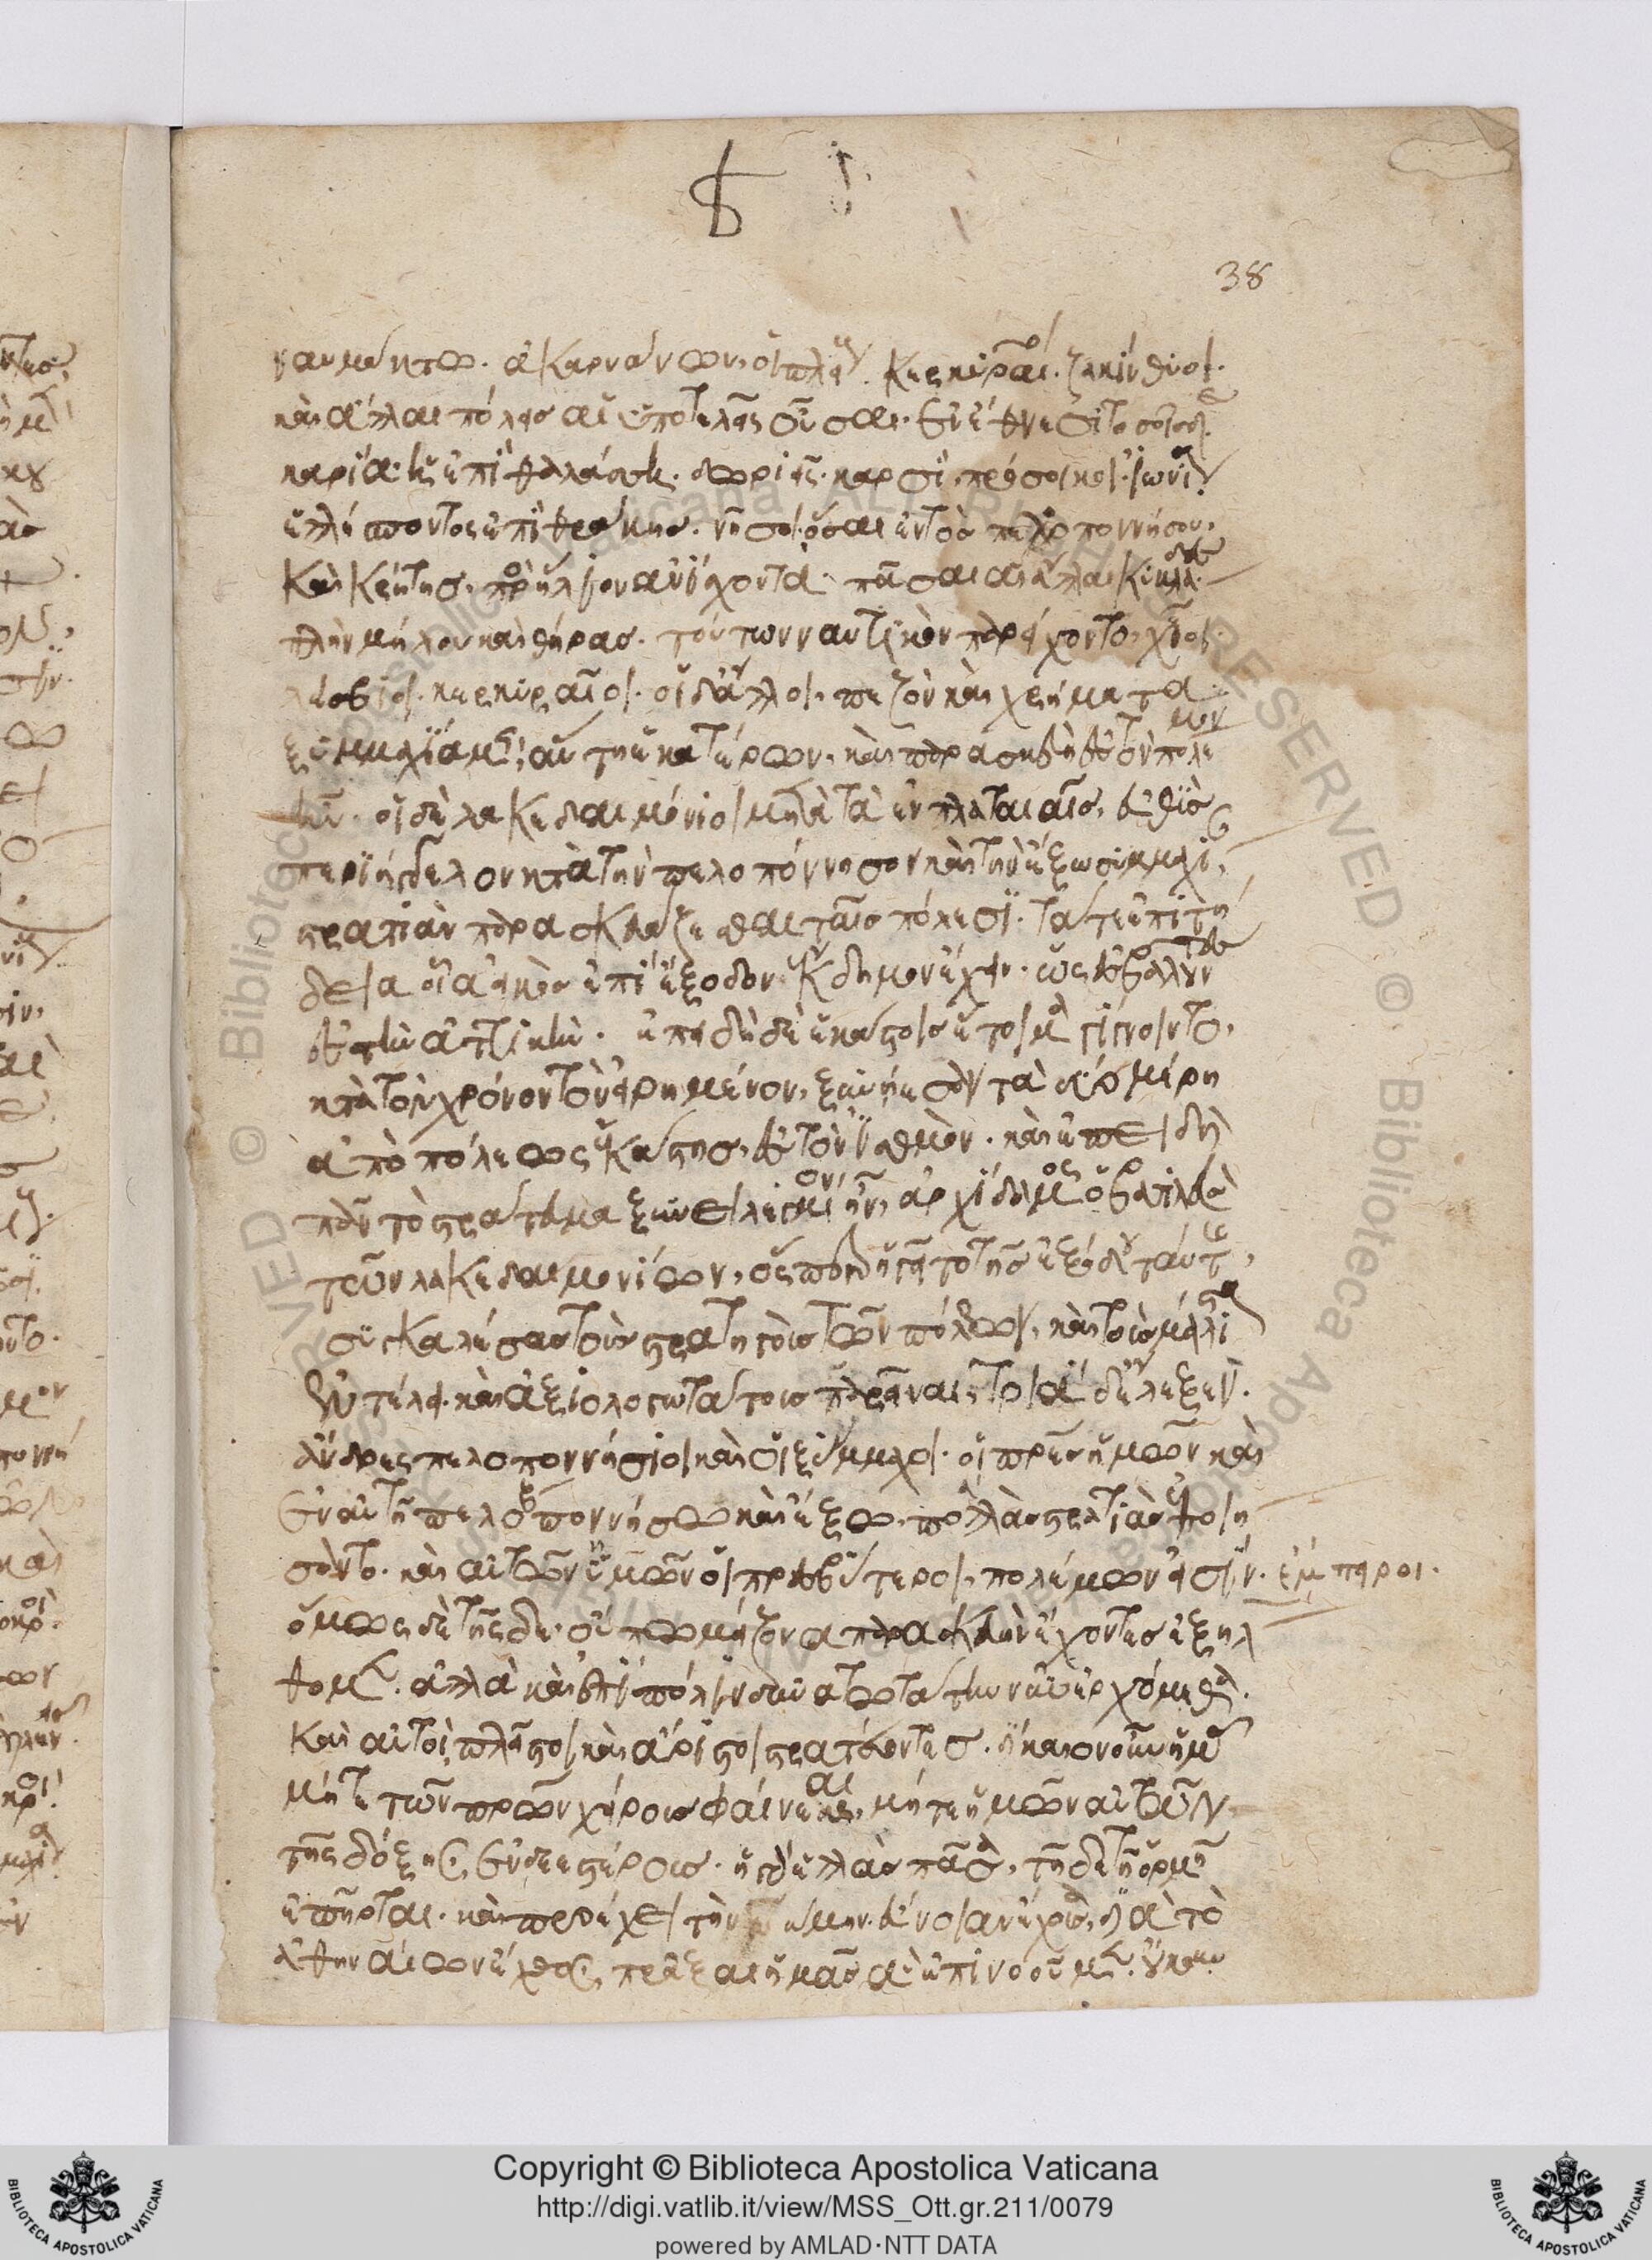 38
ναυπάκτω. ἀκαρνάνων οἱ πλείους. κερκυραῖοι. ζακύνθιοι.
καὶ ἄλλαι πόλεις αἱ ὑποτελεῖς οὖσαι. ἐν ἔθνεσι τοσοῖσδε
καρία ἡ ἐπὶ θαλάσση. δωριεῖς. καρσὶ πρόσοικοι. ἰωνία
ἑλλήσποντος ἐπὶ θράκης. νῆσοι ὅσαι ἐντὸς πελοποννήσου
καὶ κρήτης, πρὸς ἥλιον ἀνίσχοντα. πᾶσαι αἱ ἄλλαι κυκλάδες
πλὴν μήλου καὶ θήρας. τούτων ναυτικὸν παρείχοντο, χῖοι.
λέσβιοι. κερκυραῖοι. οἱ δ' ἄλλοι, πεζὸν καὶ χρήματα.
ξυμμαχία μὲν αὕτη ἑκατέρων, καὶ παρασκευὴ ἐς τὸν πόλεμον
ἦν. οἱ δὲ λακεδαιμόνιοι μετὰ τὰ ἐν πλαταιαῖς, εὐθὺς
περιήγγελλον κατὰ τὴν πελοπόννησον καὶ τὴν ἔξω ξυμμαχίδα
στρατιὰν παρασκευάζεσθαι ταῖς πόλεσι. τά τε ἐπιτή
δεια οἷα εἰκὸς ἐπὶ ἔξοδον ἔκδημον ἔχειν. ὡς ἐσβαλοῦντες
ἐς τὴν ἀττικήν. ἐπειδὴ δὲ ἑκάστοις ἑτοῖμα γίγνοιντο,
κατὰ τὸν χρόνον τὸν εἰρημένον, ξυνήεσαν τὰ δύο μέρη
ἀπὸ πόλεως ἑκάστης, ἐς τὸν ἰσθμόν. καὶ ἐπειδὴ
πᾶν τὸ στράτευμα ξυνειλεγμένον ἦν, ἀρχίδαμος ὁ βασιλεὺς
τῶν λακεδαιμονίων, ὅσπερ ἡγεῖτο τῆς ἐξόδου ταύτης,
συγκαλέσας τοὺς στρατηγοὺς τῶν πόλεων, καὶ τοὺς μάλιστα
ἐν τέλει. καὶ ἀξιολογωτάτους παρεῖναι, τοιάδ' ἔλεξεν.
ἄνδρες πελοποννήσιοι καὶ οἱ ξύμμαχοι. οἱ πατέρες ἡμῶν καὶ
ἐν αὐτῇ πελοποννήσω καὶ ἔξω. πολλὰς στρατιὰς ἐποιή
σαντο. καὶ αὐτῶν ἡμῶν οἱ πρεσβύτεροι, πολέμων εἰσίν. ἔμπειροι.
ὅμως δὲ τῆσδε οὔπω μείζονα παρασκευὴν ἔχοντες ἐξήλ
θομεν. ἀλλὰ καὶ ἐπὶ πόλιν δυνατωτάτην νῦν ἐρχόμεθα.
καὶ αὐτοὶ πλεῖστοι καὶ ἄριστοι στρατεύοντες. δίκαιον οὖν ἡμᾶς
μήτε τῶν πατέρων χείρους φαίνεσθαι, μήτε ἡμῶν αὐτῶν
τῆς δόξης ἐνδεεστέρους. ἡ γὰρ ἑλλὰς πᾶσα, τῆδε τῆ ὁρμῆ
ἐπῆρται. καὶ προσέχει τὴν γνώμην. εὔνοιαν ἔχουσα, διὰ τὸ
ἀθηναίων ἔχθος, πρᾶξαι ἡμᾶς ἃ ἐπινοοῦμεν. οὔκουν
Copyright © Biblioteca Apostolica Vaticana
http://digi.vatlib.it/view/MSS_Ott.gr.211/0079
powered by AMLAD·NTT DATA